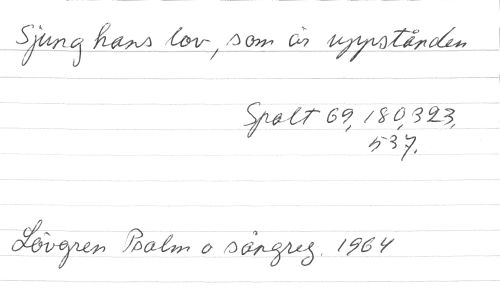 Sjung hans lov, som är uppstånden
Spalt 69, 180, 323,
537.
Lövgren Psalm o sångreg. 1964